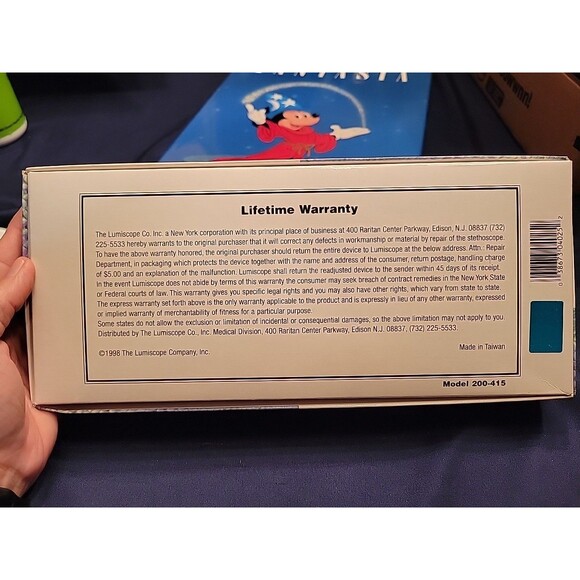 FANTASIA
Lifetime Warranty
The Lumiscope Co. Inc. a New York corporation with its principal place of business at 400 Raritan Center Parkway, Edison, N.J. 08837 (732)
225-5533 hereby warrants to the original purchaser that it will correct any defects in workmanship or material by repair of the stethoscope.
To have the above warranty honored, the original purchaser should return the entire device to Lumiscope at the below address. Attn.: Repair
Department, in packaging which protects the device together with the name and address of the consumer, return postage, handling charge
of $5.00 and an explanation of the malfunction. Lumiscope shall return the readjusted device to the sender within 45 days of its receipt.
in the event Lumiscope does not abide by terms of this warranty the consumer may seek breach of contract remedies in the New York State
or Federal courts of law. This warranty gives you specific legal rights and you may also have other rights, which vary from state to state.
The express warranty set forth above is the only warranty applicable to the product and is expressly in lieu of any other warranty, expressed
or implied warranty of merchantability of fitness for a particular purpose.
Some states do not allow the exclusion or limitation of incidental or consequential damages, so the above limitation may not apply to you.
Distributed by The Lumiscope Co., Inc. Medical Division, 400 Raritan Center Parkway, Edison N.J. 08837, (732) 225-5533.
©1998 The Lumiscope Company, Inc.
Made in Taiwan
Model 200-415